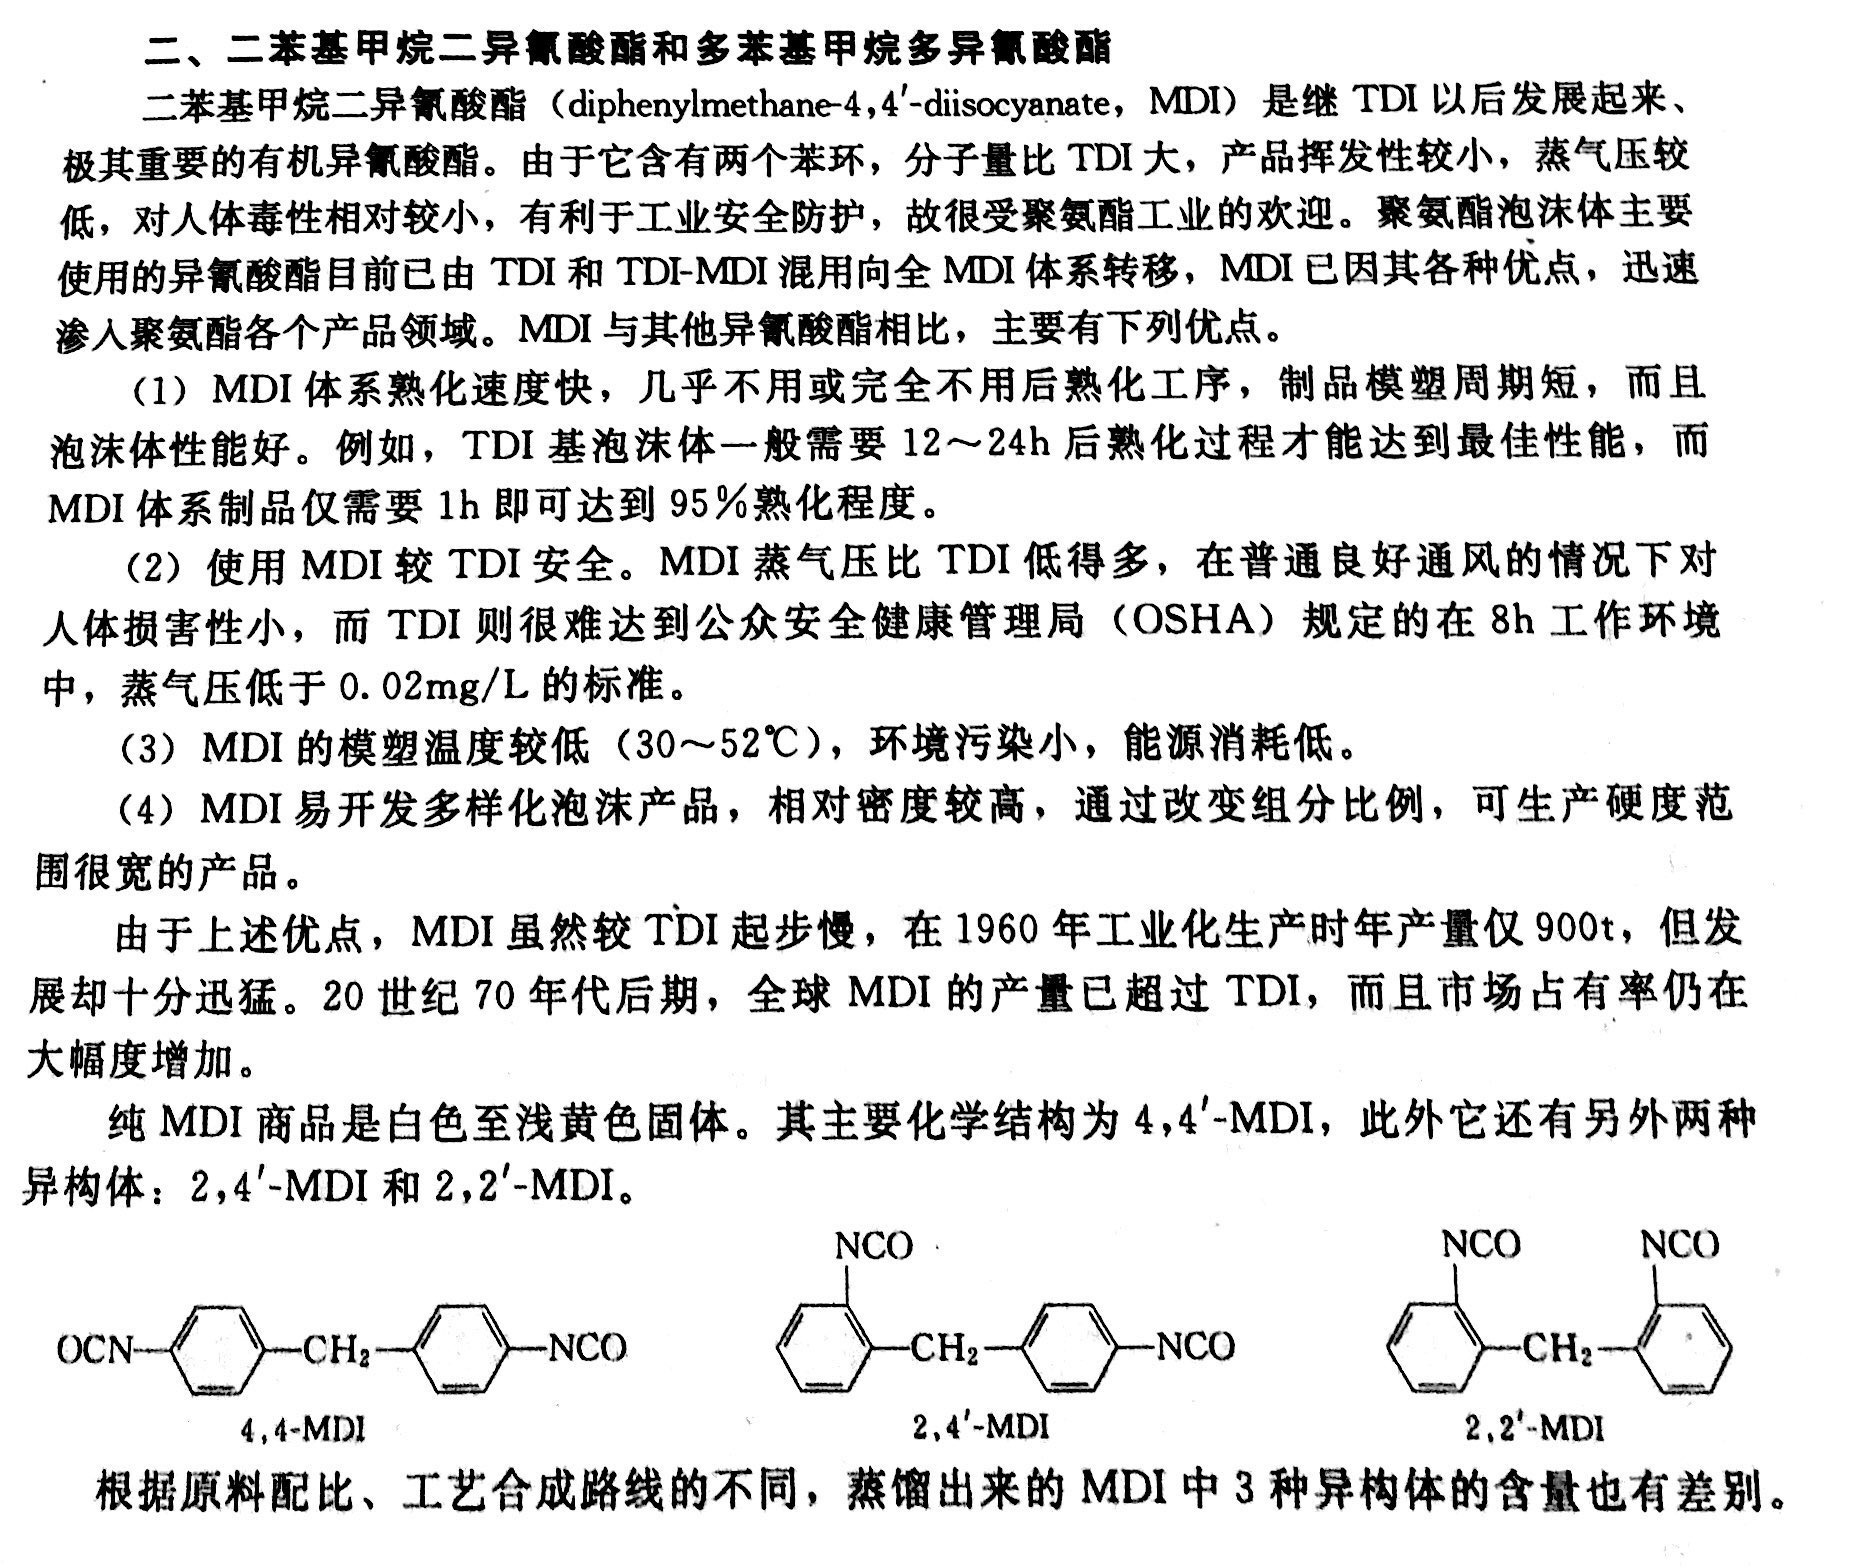 二、二苯基甲烷二异氰酸酯和多苯基甲烷多异氰酸酯
二苯基甲烷二异氰酸酯（diphenylmethane-4,4′-diisocyanate，MDI）是继 TDI 以后发展起来、
极其重要的有机异氰酸酯。由于它含有两个苯环，分子量比 TDI 大，产品挥发性较小，蒸气压较
低，对人体毒性相对较小，有利于工业安全防护，故很受聚氨酯工业的欢迎。聚氨酯泡沫体主要
使用的异氰酸酯目前已由 TDI 和 TDI-MDI 混用向全 MDI 体系转移，MDI 已因其各种优点，迅速
渗入聚氨酯各个产品领域。MDI 与其他异氰酸酯相比，主要有下列优点。
（1）MDI 体系熟化速度快，几乎不用或完全不用后熟化工序，制品模塑周期短，而且
泡沫体性能好。例如，TDI 基泡沫体一般需要 12～24h 后熟化过程才能达到最佳性能，而
MDI 体系制品仅需要 1h 即可达到 95％熟化程度。
（2）使用 MDI 较 TDI 安全。MDI 蒸气压比 TDI 低得多，在普通良好通风的情况下对
人体损害性小，而 TDI 则很难达到公众安全健康管理局（OSHA）规定的在 8h 工作环境
中，蒸气压低于 0.02mg/L 的标准。
（3）MDI 的模塑温度较低（30～52℃），环境污染小，能源消耗低。
（4）MDI 易开发多样化泡沫产品，相对密度较高，通过改变组分比例，可生产硬度范
围很宽的产品。
由于上述优点，MDI 虽然较 TDI 起步慢，在 1960 年工业化生产时年产量仅 900t，但发
展却十分迅猛。20 世纪 70 年代后期，全球 MDI 的产量已超过 TDI，而且市场占有率仍在
大幅度增加。
纯 MDI 商品是白色至浅黄色固体。其主要化学结构为 4,4′-MDI，此外它还有另外两种
异构体：2,4′-MDI 和 2,2′-MDI。
NCO NCO NCO
OCN CH₂ NCO CH₂ NCO CH₂
4,4-MDI 2,4′-MDI 2,2′-MDI
根据原料配比、工艺合成路线的不同，蒸馏出来的 MDI 中 3 种异构体的含量也有差别。